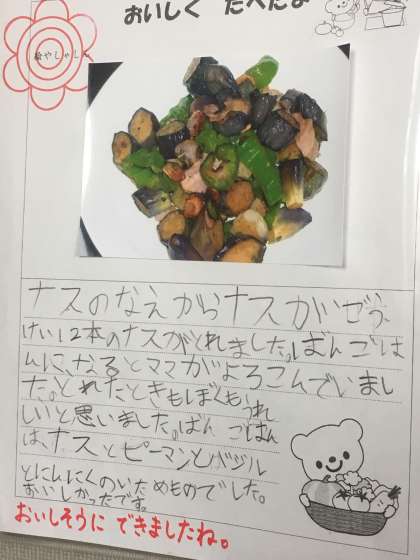 おいしく たべたよ
絵やしゃしん
ナスのなえからナスがぜんぶで
けい12本のナスがとれました。ばんごは
んに、なるとママがよろこんでいまし
た。とれたときもぼくもうれ
しいと思いました。ばんごはん
は、ナスとピーマンとバジル
とにんにくのいためものでした。
おいしかったです。
おいしそうに できましたね。